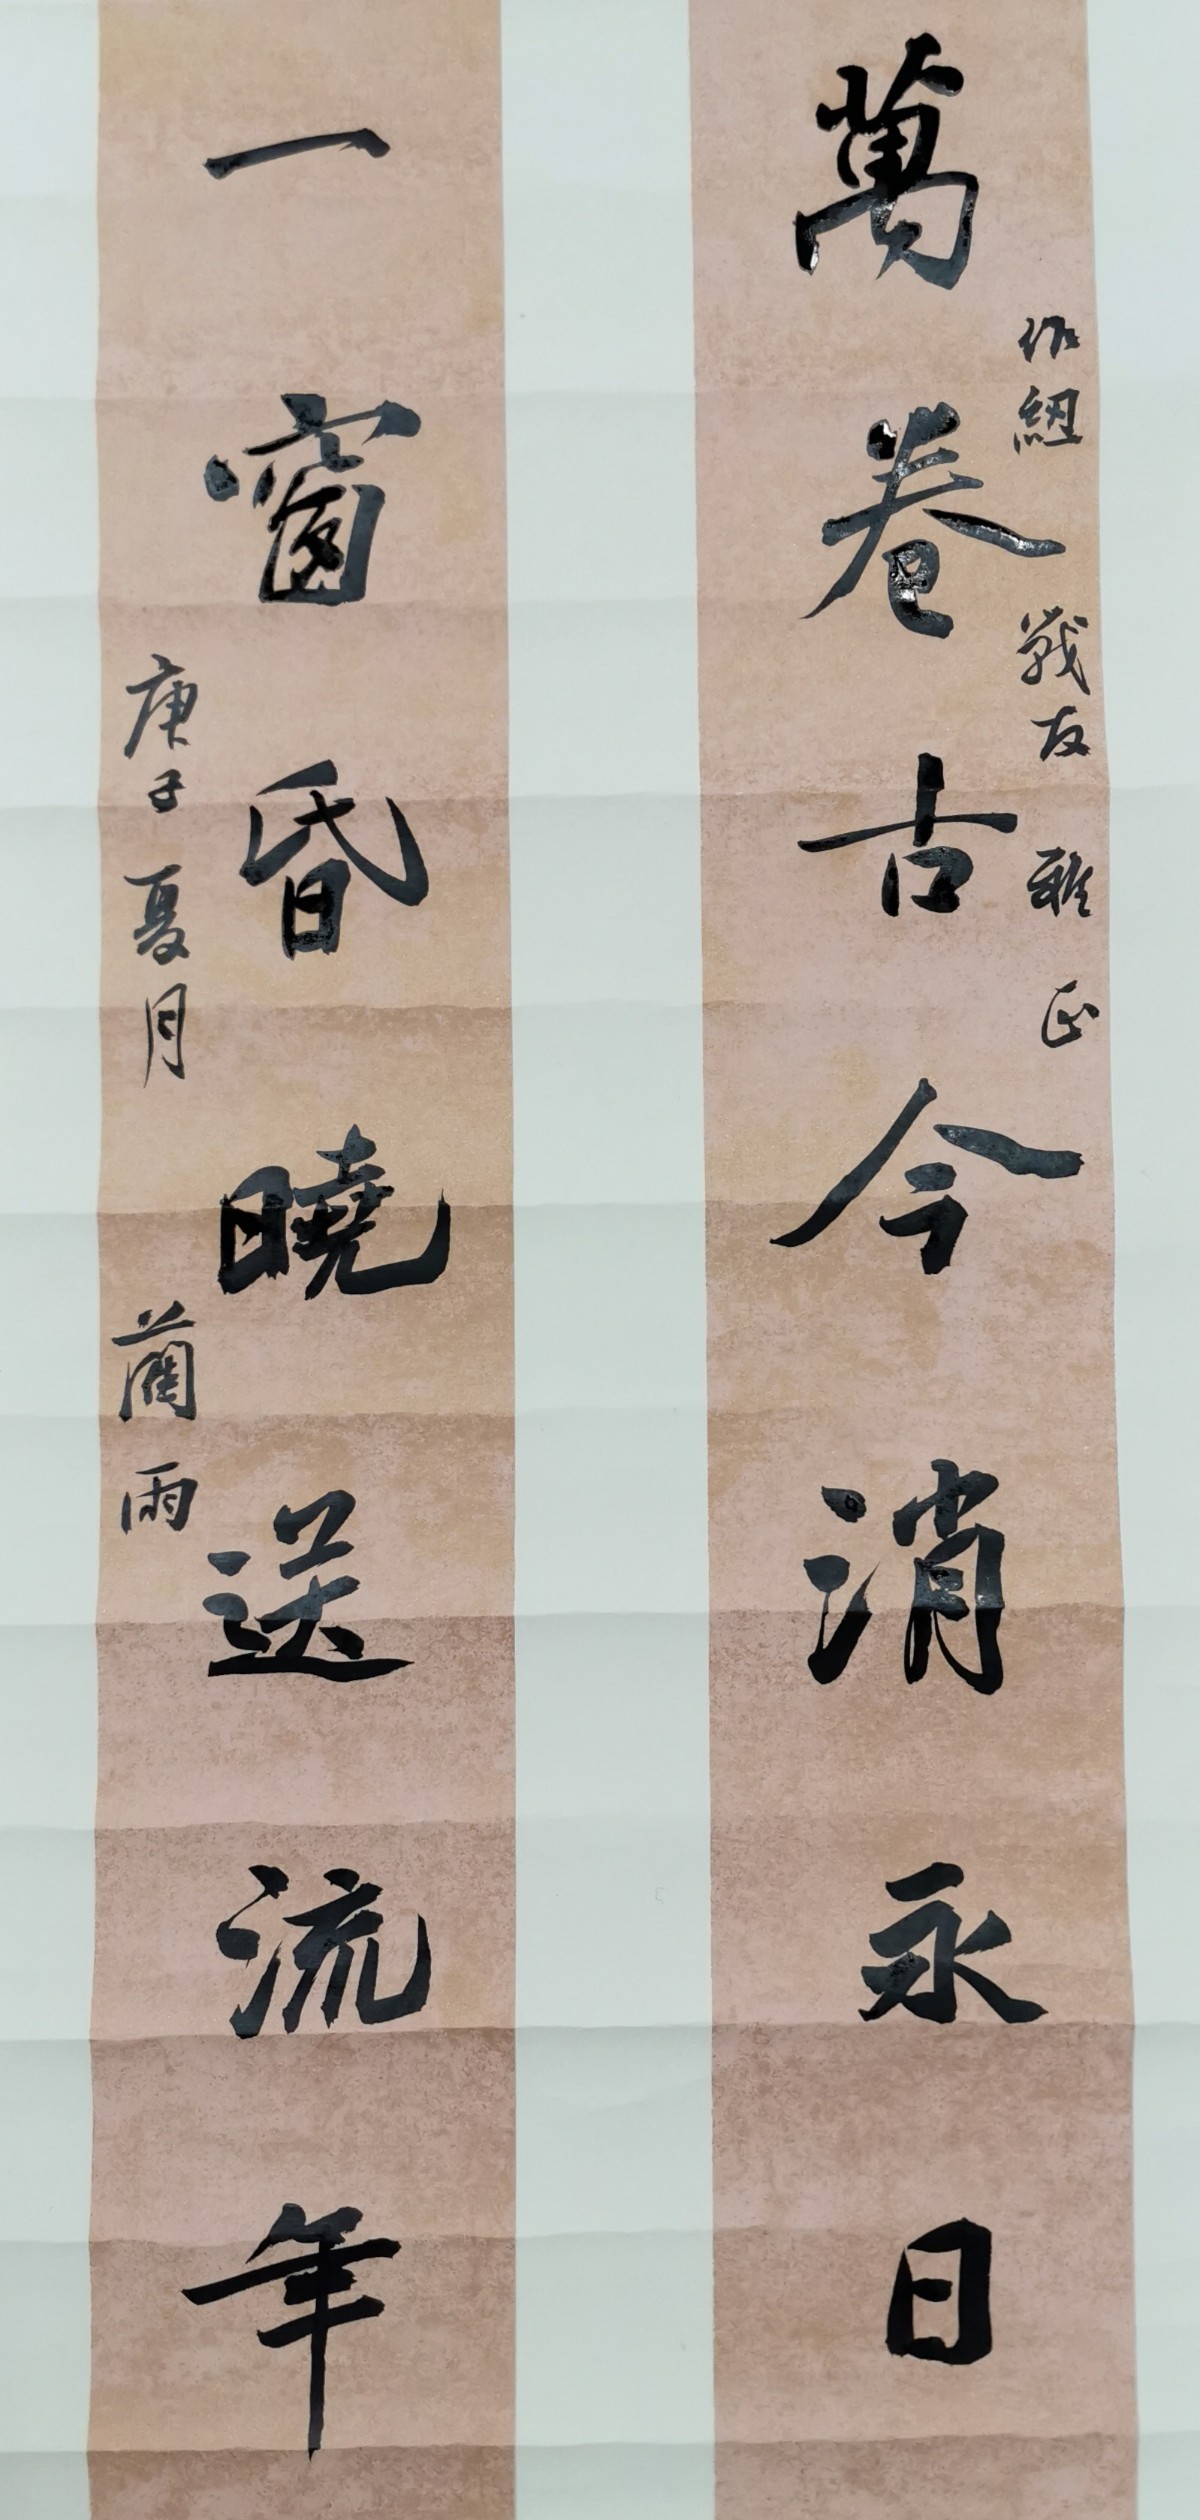 萬卷古今消永日
紐 戰友 雅正
一窗昏曉送流年
庚子夏月 蘭雨